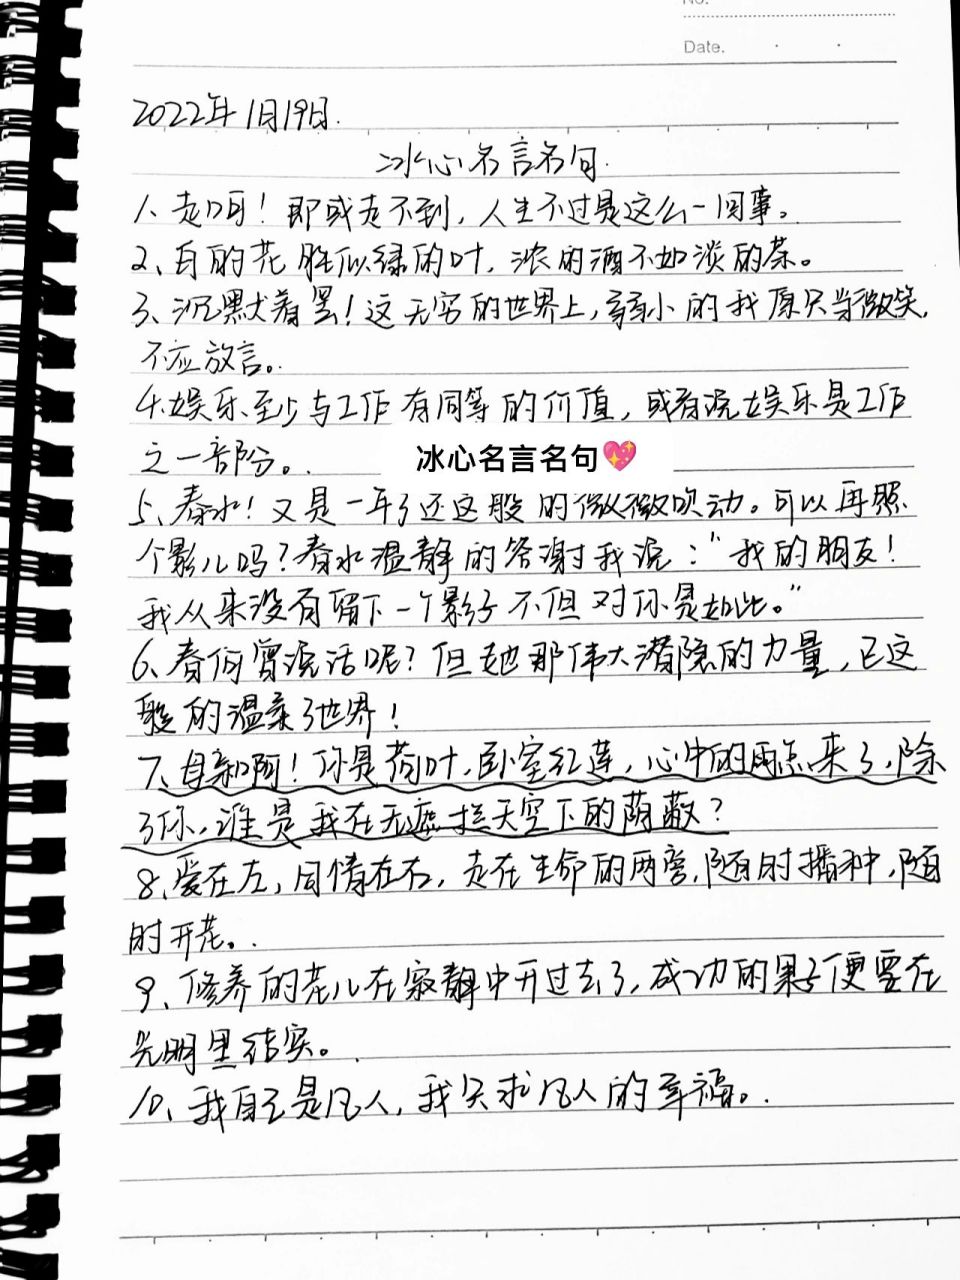 No.
Date.
2022年1月19日.
冰心名言名句.
1、走啊！即或走不到，人生不过是这么一回事。
2、白的花胜似绿的叶，浓的酒不如淡的茶。
3、沉默着罢！这无穷的世界上，弱小的我原只当微笑，
不应放言。
4、娱乐至少与工作有同等的价值，或者说娱乐是工作
之一部分。
冰心名言名句💖
5、春水！又是一年了还这般的微微吹动。可以再照
个影儿吗？春水温静的答谢我说：“我的朋友！
我从来没有留下一个影子不但对你是如此。”
6、春何曾说话呢？但她那伟大潜隐的力量，已这
般的温柔了世界！
7、母亲啊！你是荷叶，卧室红莲，心中的雨点来了，除
了你，谁是我在无遮拦天空下的荫蔽？
8、爱在左，同情在右，走在生命的两旁，随时播种，随
时开花。
9、修养的花儿在寂静中开过去了，成功的果子便要在
光明里结实。
10、我自己是凡人，我只求凡人的幸福。